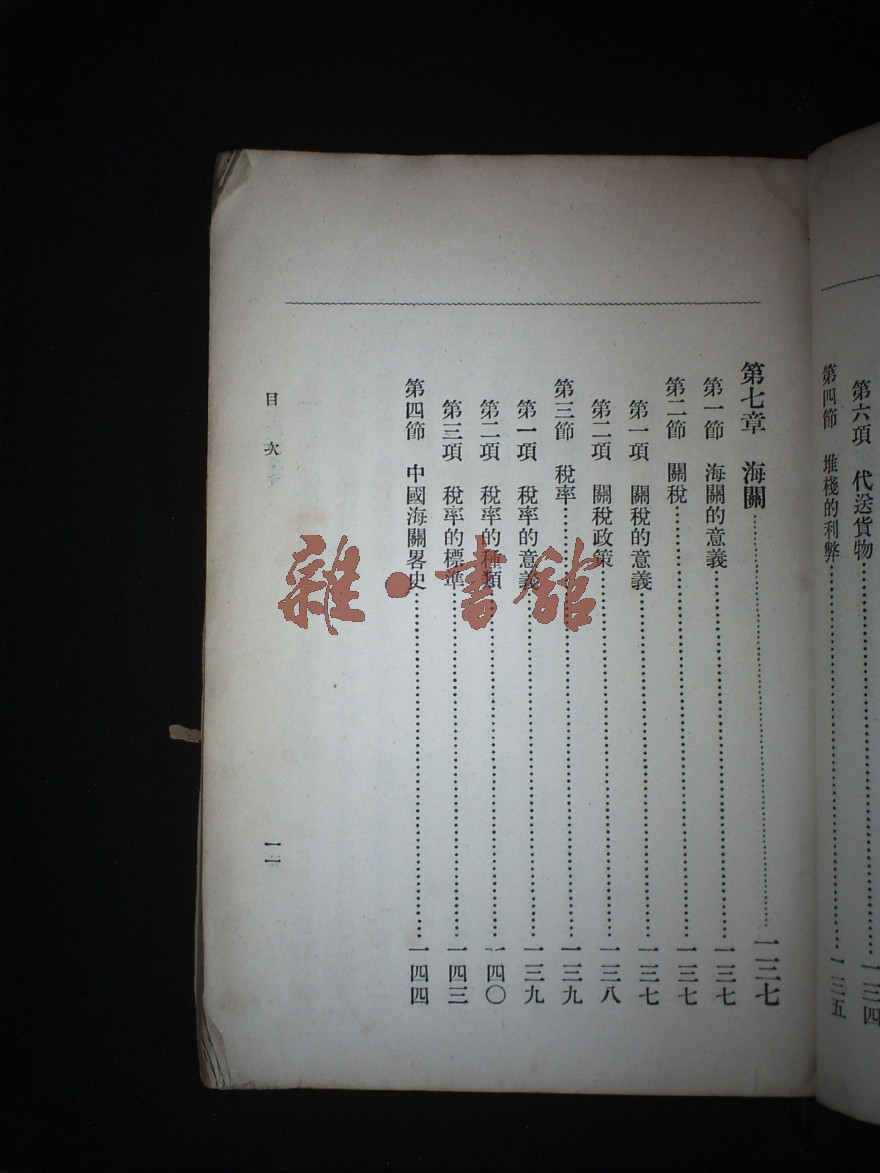 第六項　代送貨物……一三四
第四節　堆棧的利弊……一三五
第七章　海關……一三七
第一節　海關的意義……一三七
第二節　關稅……一三七
第一項　關稅的意義……一三七
第二項　關稅政策……一三八
第三節　稅率……一三九
第一項　稅率的意義……一三九
第二項　稅率的種類……一四〇
第三項　稅率的標準……一四三
第四節　中國海關畧史……一四四
目次
一一
雜·書館